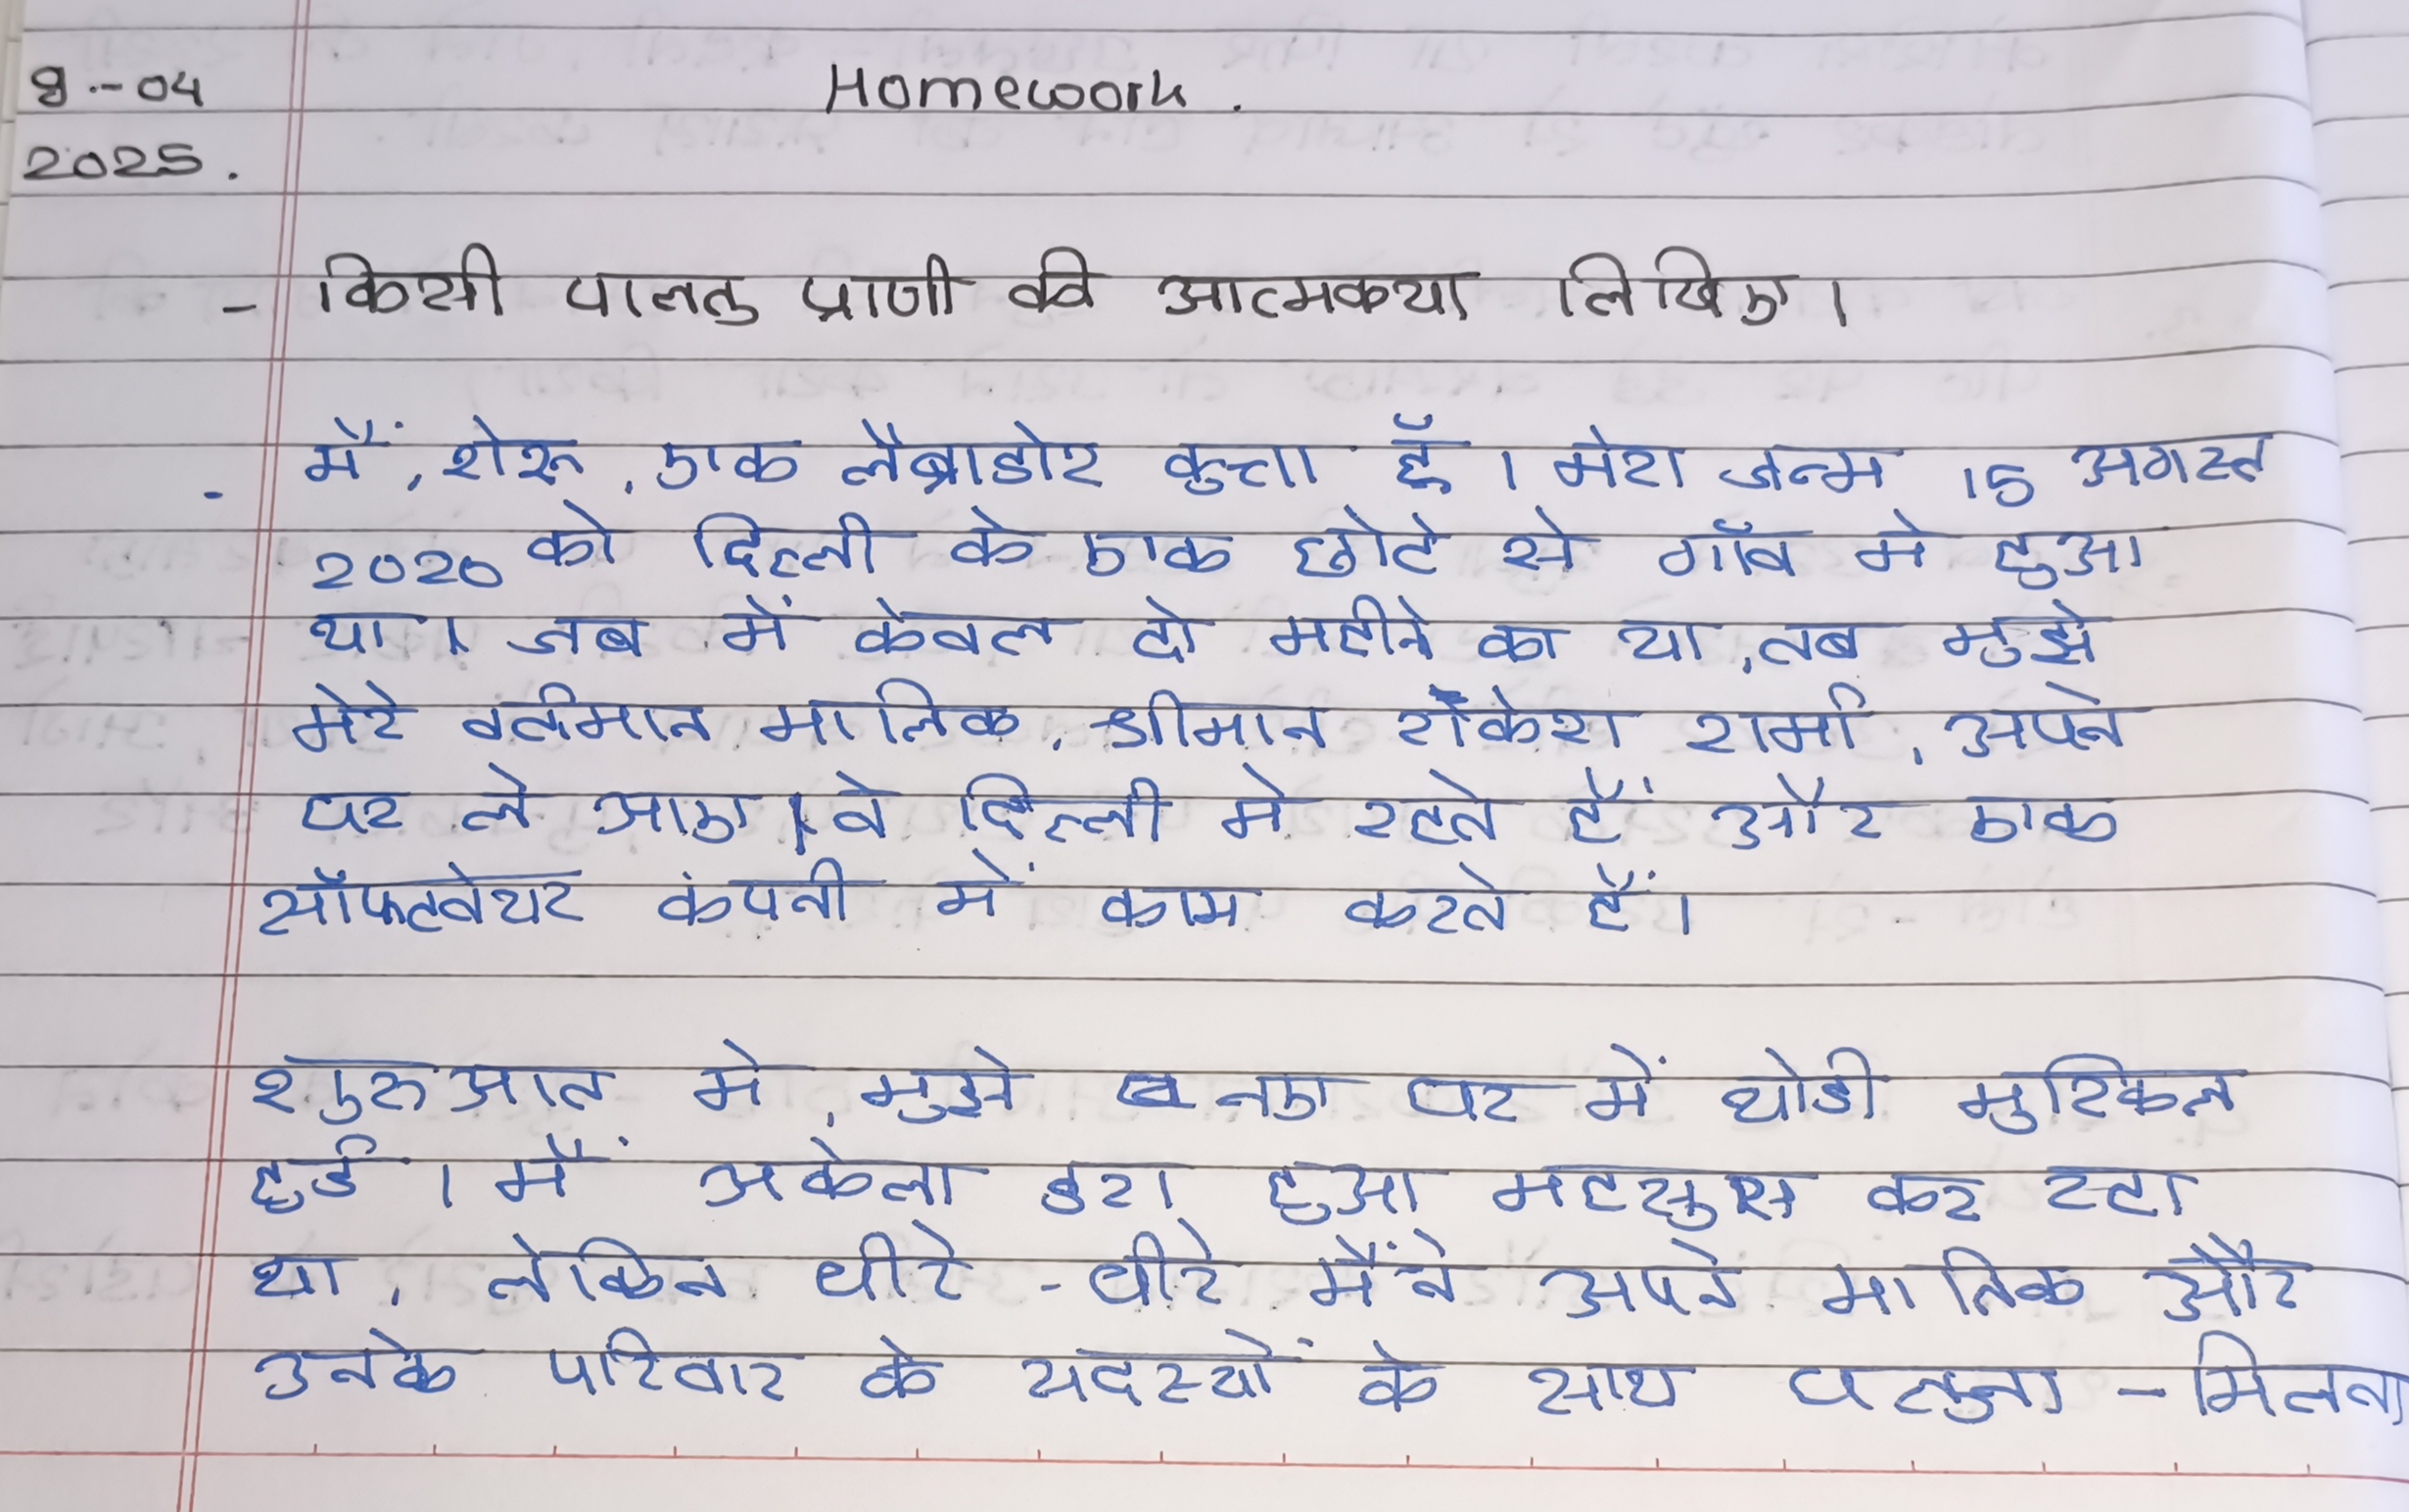 8.-04
2025.
Homework.
- किसी पालतु प्राणी की आत्मकथा लिखिए।
मैं, शेरू, एक लैब्राडोर कुत्ता हूँ। मेरा जन्म 15 अगस्त
2020 को दिल्ली के एक छोटे से गाँव मे हुआ
था। जब में केवल दो महीने का था, तब मुझे
मेरे वर्तमान मालिक, श्रीमान राकेश शर्मा, अपने
घर ले आए। वे दिल्ली मे रहते हैं और एक
सॉफ्टवेयर कंपनी में काम करते हैं।
शुरुआत मे, मुझे नए घर में थोडी मुश्किल
हुई। मैं अकेला डरा हुआ महसुस कर रहा
था, लेकिन धीरे - धीरे मैंने अपने मालिक और
उनके परिवार के सदस्यों के साथ घलुना - मिलना